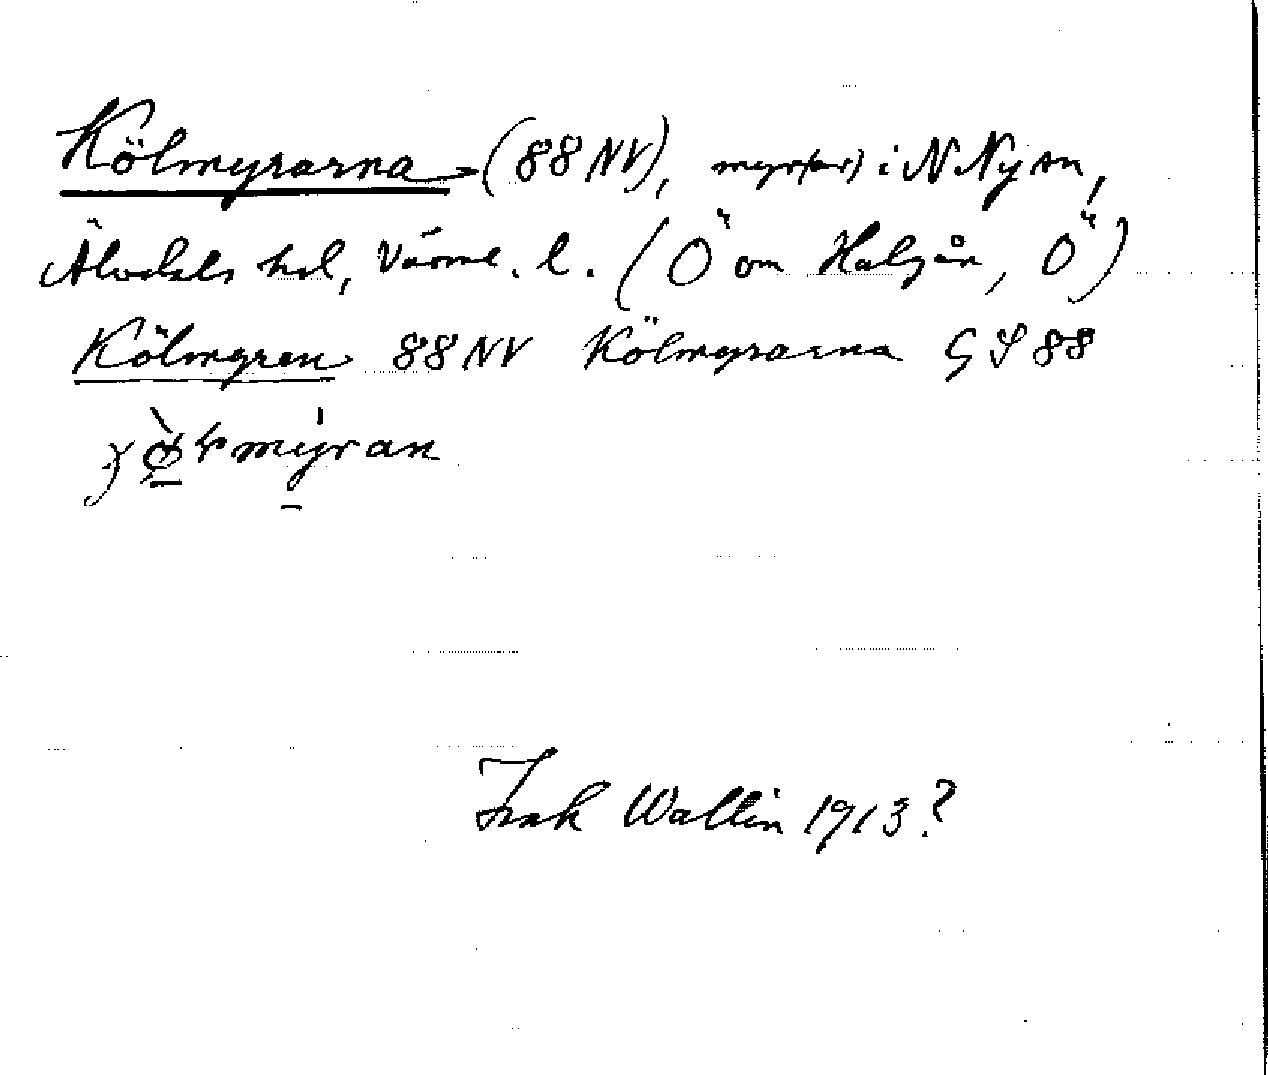 Kölmyrarna (88 NV), myr(ar) i N Ny sn,
Älvdals hd, Värml. l. (Ö om Halgån, Ö)
Kölmyren 88 NV Kölmyrarna G S 88
myran
Wallin 1913?